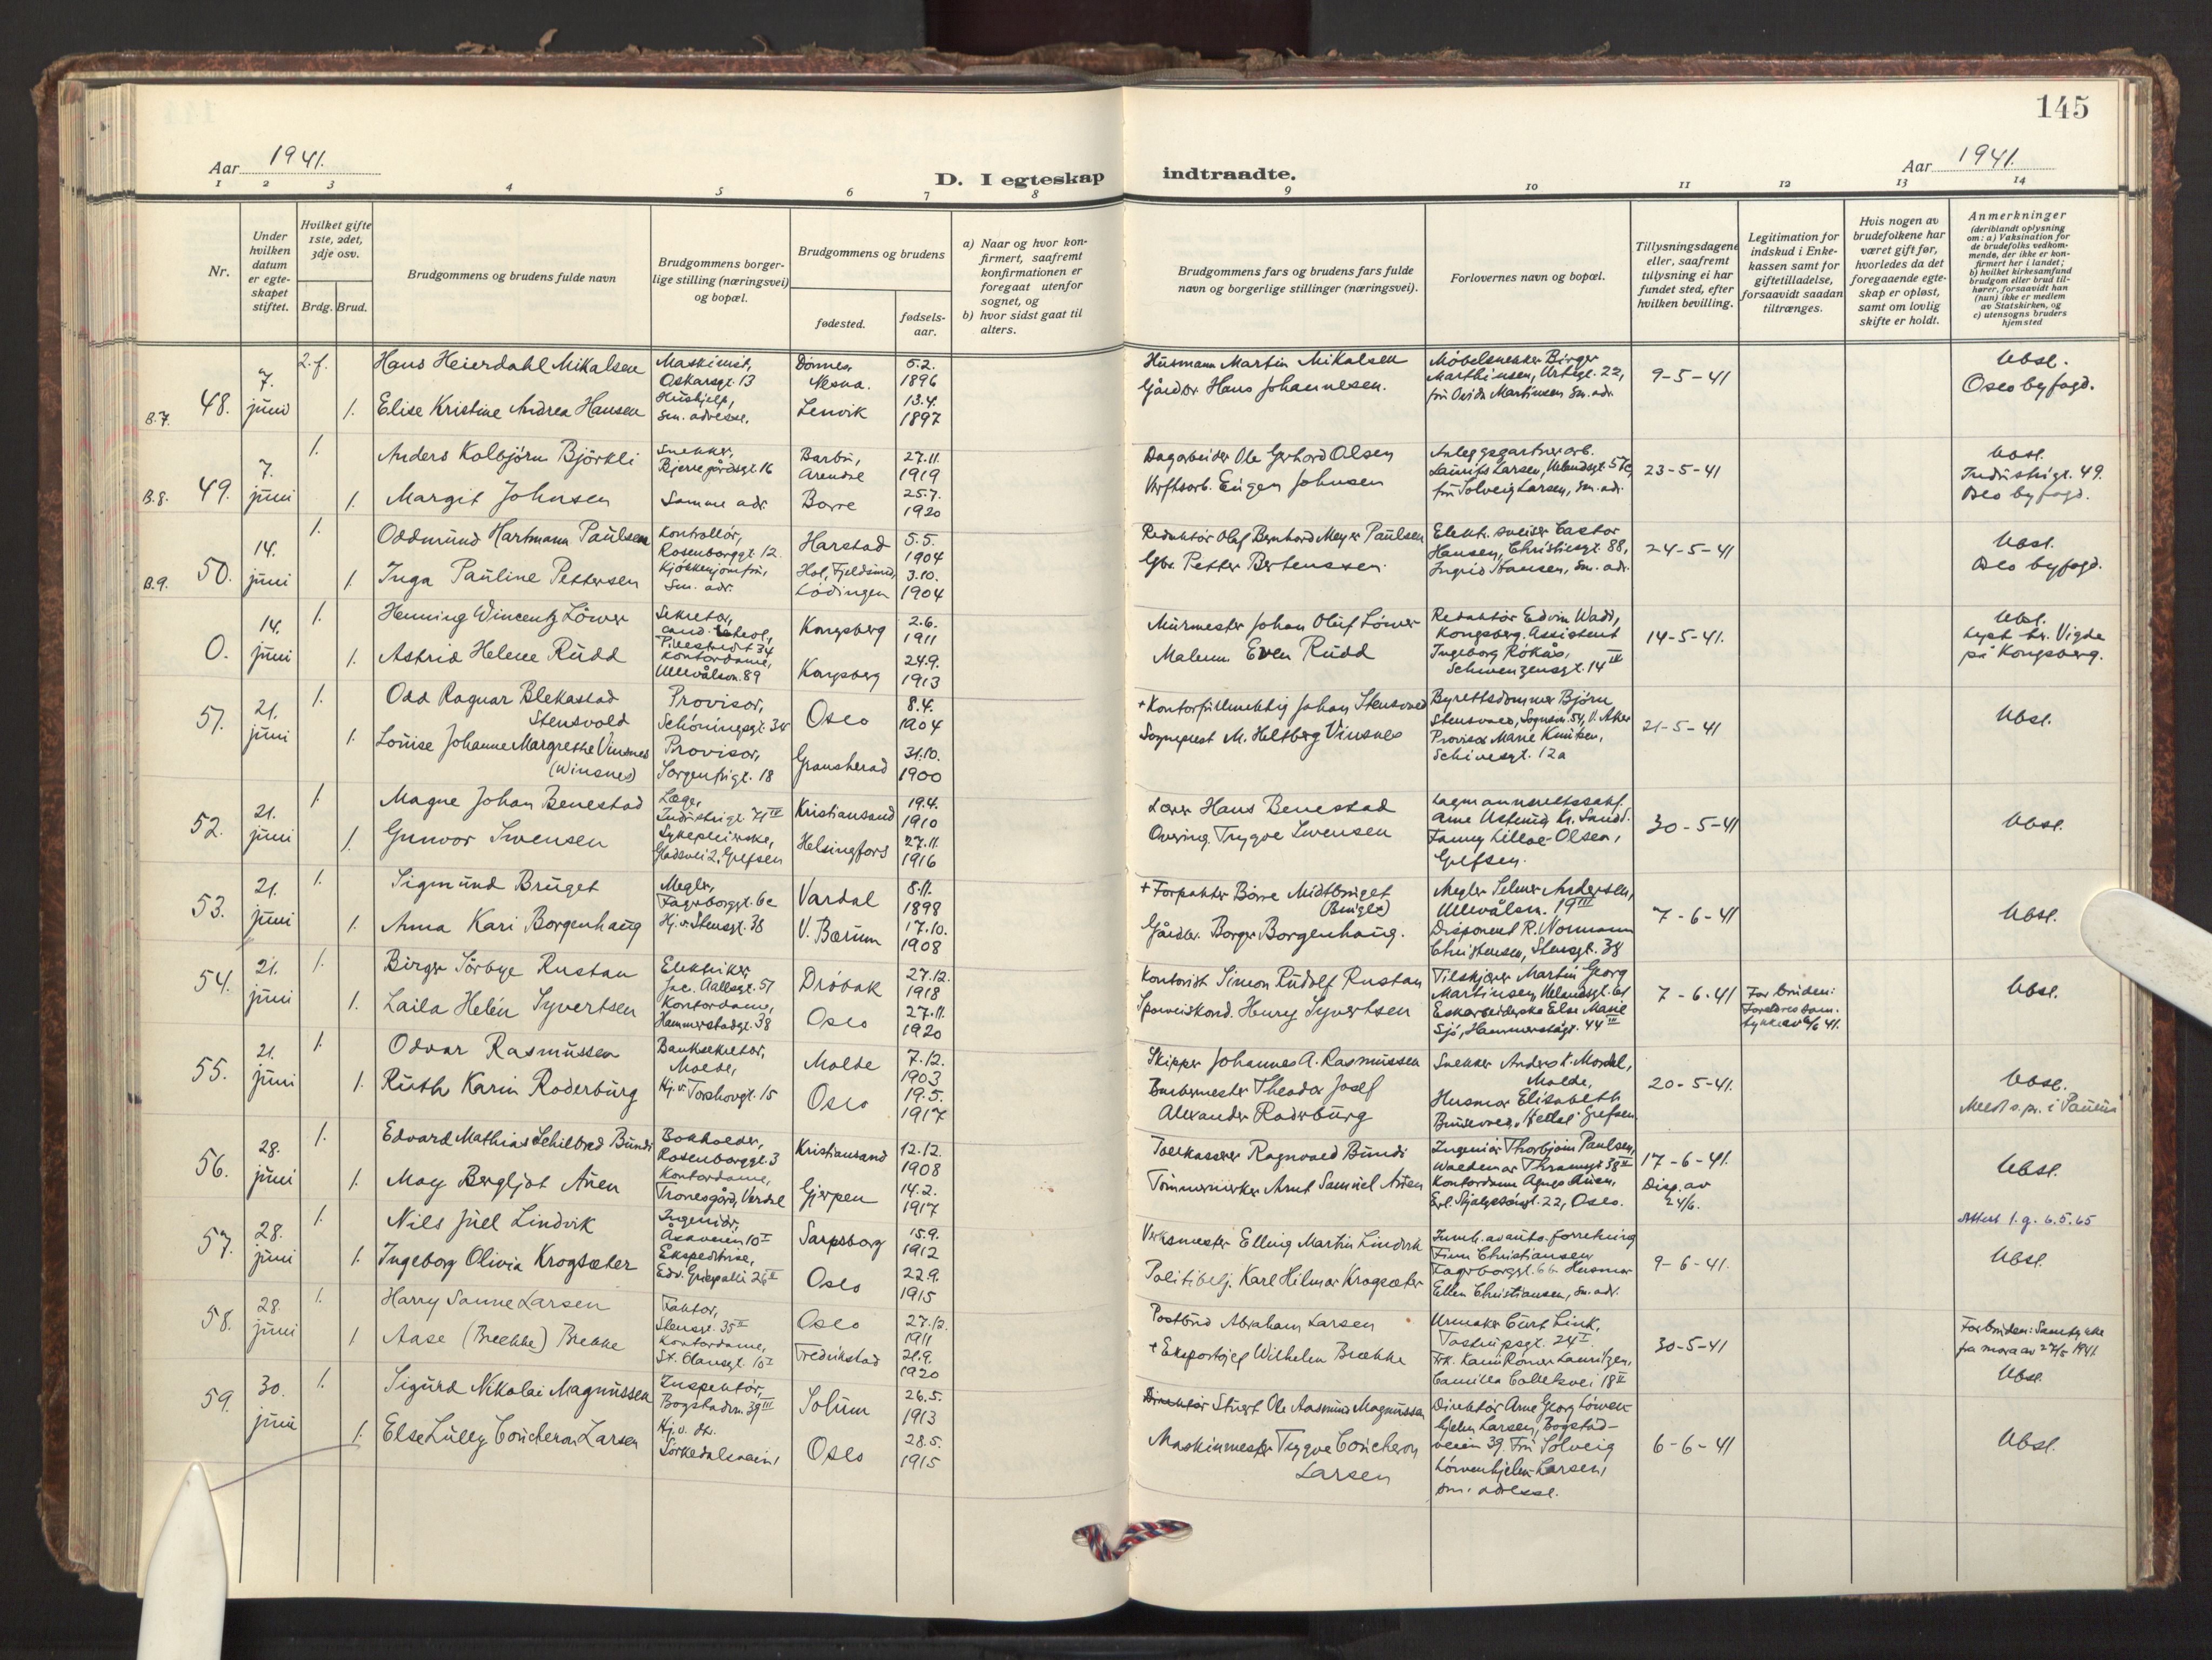 145
Aar 1941.
D. Iegteskap indtraadte.
Aar 1941.
1 2 3 4 5 6 7 8 9 10 11 12 13 14
Nr.
Under hvilken datum er egteskapet stiftet.
Hvilket gifte 1ste, 2det, 3dje osv.
Brdg. Brud.
Brudgommens og brudens fulde navn
Brudgommens borgerlige stilling (næringsvei) og bopæl.
Brudgommens og brudens
fødested.
fødselsaar.
a) Naar og hvor konfirmert, saafremt konfirmationen er foregaat utenfor sognet, og
b) hvor sidst gaat til alters.
Brudgommens fars og brudens fars fulde navn og borgerlige stillinger (næringsvei).
Forlovernes navn og bopæl.
Tillysningsdagene eller, saafremt tillysning ei har fundet sted, efter hvilken bevilling.
Legitimation for indskud i Enkekassen samt for giftetilladelse, forsaavidt saadan tiltrænges.
Hvis nogen av brudefolkene har været gift før, hvorledes da det foregaaende egteskap er opløst, samt om lovlig skifte er holdt.
Anmerkninger (deriblandt oplysning om: a) Vaksination for de brudefolks vedkommende, der ikke er konfirmert her i landet; b) hvilket kirkesamfund brudgom eller brud tilhører, forsaavidt han (hun) ikke er medlem av Statskirken, og c) utensogns bruders hjemsted
B.7. 48. 7. juni 2.f. Hans Heierdahl Mikalsen Maskinist, Oskarsgt. 13 Dønnes, Nesna. 5.2. 1896 Husmann Martin Mikalsen Møbelsnekker Birger Marthinsen, Urtegt. 22, 9-5-41 Ubsl. Oslo byfogd.
1. Elise Kristine Andrea Hansen Hushjelp, sm. adresse. Lenvik 13.4. 1897 Gårdbr. Hans Johannesen. fru Ovida Martinsen sm. adr.
B.8. 49. 7. juni 1. Anders Kolbjörn Björkli Snekker, Bjerregårdsgt. 16 Barbu, Arendal 27.11. 1919 Dagarbeider Ole Gerhard Olsen Anleggsgartnerarb. Laurits Larsen, Uelandsgt. 57c, 23-5-41 Ubsl. Industrigt. 49. Oslo byfogd.
1. Margit Johnsen Samme adr. Borre 25.7. 1920 Verftsarb. Eugen Johnsen fru Solveig Larsen, sm. adr.
B.9. 50. 14. juni 1. Oddmund Hartmann Paulsen Kontrollör, Rosenborggt. 12. Harstad 5.5. 1904 Redaktör Olaf Bernhard Meyer Paulsen Elektr. sveiser Castor Hansen, Christiesgt. 88, 24-5-41 Ubsl. Oslo byfogd.
1. Inga Pauline Pettersen Kjökkenjomfru, Sm. adr. Hol, Fjeldsund, Lödingen 3.10. 1904 Gbr. Petter Bertenssen. Ingrid Hansen, sm. adr.
0. 14. juni 1. Henning Wincentz Löwer Sekretær, cand. theol, Pilestredt 34 Kongsberg 2.6. 1911 Murmester Johan Oluf Löwer Redaktör Edvin Wad, Kongsberg. Assistent 14-5-41. Ubsl. Lyst til Vigde på Kongsberg.
1. Astrid Helene Rudd Kontordame, Ullevålsvn. 89 Kongsberg 24.9. 1913 Malerm. Even Rudd Ingeborg Rokås, Schwenzensgt. 14 IV
51. 21. juni 1. Odd Ragnar Blekastad Stensvold Provisor, Schöningsgt. 34 Oslo 8.4. 1904 + Kontorfullmektig Johan Stensvold Byrettsdommer Björn Stensvold, Sognsvn. 54, V. Aker 21-5-41 Ubsl.
1. Louise Johanne Margrethe Vinsnes (Winsnes) Provisor, Sorgenfrigt. 18 Gransherad 31.10. 1900 Sogneprest M. Heltberg Vinsnes Provisor Marie Knutsen, Schivesgt. 12a
52. 21. juni 1. Magne Johan Benestad Læge, Industrigt. 71 IV Kristiansand 19.4. 1910 Lærer Hans Benestad Lagmannsrettssakf. Arne Kr. sand. 30-5-41 Ubsl.
1. Gunvor Svensen Sykepleierske, Gladsvei 2, Grefsen Helsingfors 27.11. 1916 Overing. Trygve Svensen Fanny Lilloe-Olsen, Grefsen.
53. 21. juni 1. Sigmund Bruget Megler, Fagerborggt. 6c Vardal 8.11. 1898 + Forpakter Börre Midtbruget Megler Selmer Andersen, Ullevålsvn. 19 III 7-6-41 Ubsl.
1. Anna Kari Borgenhaug Hj. v. Stensgt. 38 V. Bærum 17.10. 1908 Gårdbr. Borger Borgenhaug. Disponent R. Normann Christensen, Stensgt. 38
54. 21. juni 1. Birger Sörbye Rustan Elektriker, Jac. Aallsgt. 57 Dröbak 27.12. 1918 Kontorist Simon Rudolf Rustan Tilskjærer Martin Georg Martinsen, Uelandsgt. 61 7-6-41 For bruden: Foreldres samtykke av 6/6 41. Ubsl.
1. Laila Helén Syvertsen Kontordame, Hammerstadgt. 38 Oslo 27.11. 1920 Sporveiskond. Henry Syvertsen Eskearbeiderske Else Marie Sjö, Hammerstadgt. 44 III
55. 21. juni 1. Odvar Rasmussen Banksekretær, Molde, Molde 7.12. 1903 Skipper Johannes A. Rasmussen Snekker Anders K. Mordal, Molde, 20-5-41. Ubsl.
1. Ruth Karin Roderburg Hj. v. Torshovgt. 15 Oslo 19.5. 1917 Barbermester Theodor Josef Alexander Roderburg Husmor Elisabeth Grefsen Meldt s.pr. i Paulus
56. 28. juni 1. Edvard Mathias Schilbred Bundi Bokholder, Rosenborggt. 3 Kristiansand 12.12. 1908 Tollkasserer Ragnvald Bundi Ingeniör Thorbjörn Paulsen, Waldemar Thranesgt. 38 II 17-6-41. Ubsl.
1. May Bergljot Auen Kontordame, Tronesgård, Verdal Gjerpen 14.2. 1917 Tömmermerker Arnt Samuel Auen Kontordame Agnes Auen, Erl. Skjalgssönsgt. 22, Oslo. Disp. av 24/6.
Attest 1.g. 6.5.65
57. 28. juni 1. Nils Juel Lindvik Ingeniör, Åsaveien 10 I Sarpsborg 15.9. 1912 Verksmester Elling Martin Lindvik Inneh. av auto-forretning Finn Christiansen 9-6-41. Ubsl.
1. Ingeborg Olivia Krogsæter Ekspeditrise, Edv. Griegsallé 26 II Oslo 22.9. 1915 Politibetj. Karl Hilmar Krogsæter Fagerborggt. 6b Husmor Ellen Christiansen, sm. adr.
58. 28. juni 1. Harry Sanne Larsen Faktor, Stensgt. 35 II Oslo 27.12. 1911 Postbud Abraham Larsen Urmaker Curt Link, Tostrupsgt. 24 I 30-5-41 For bruden: Samtykke fra mora av 27/5 1941.
1 Aase (Brekke) Brekke Kontordame, St. Olavsgt. 10 I Fredrikstad 21.9. 1920 + Eksportsjef Wilhelm Brække Frk. Karin Römer Lauritzen, Camilla Colletsvei 18 II Ubsl.
59. 30. juni 1. Sigurd Nikolai Magnussen Inspektör, Bogstadvn. 39 III Solum 26.5. 1913 Direktör Stuert Ole Aasmund Magnussen Direktör Arne Georg Löwenhjelm Larsen, Bogstadveien 39. Fru Solveig 6-6-41 Ubsl.
1. Else Lully Coucheron Larsen Hj. v. do. Sörkedalsveien 1 Oslo 28.5. 1915 Maskinmester Trygve Coucheron Larsen Löwenhjelm-Larsen, sm. adresse.